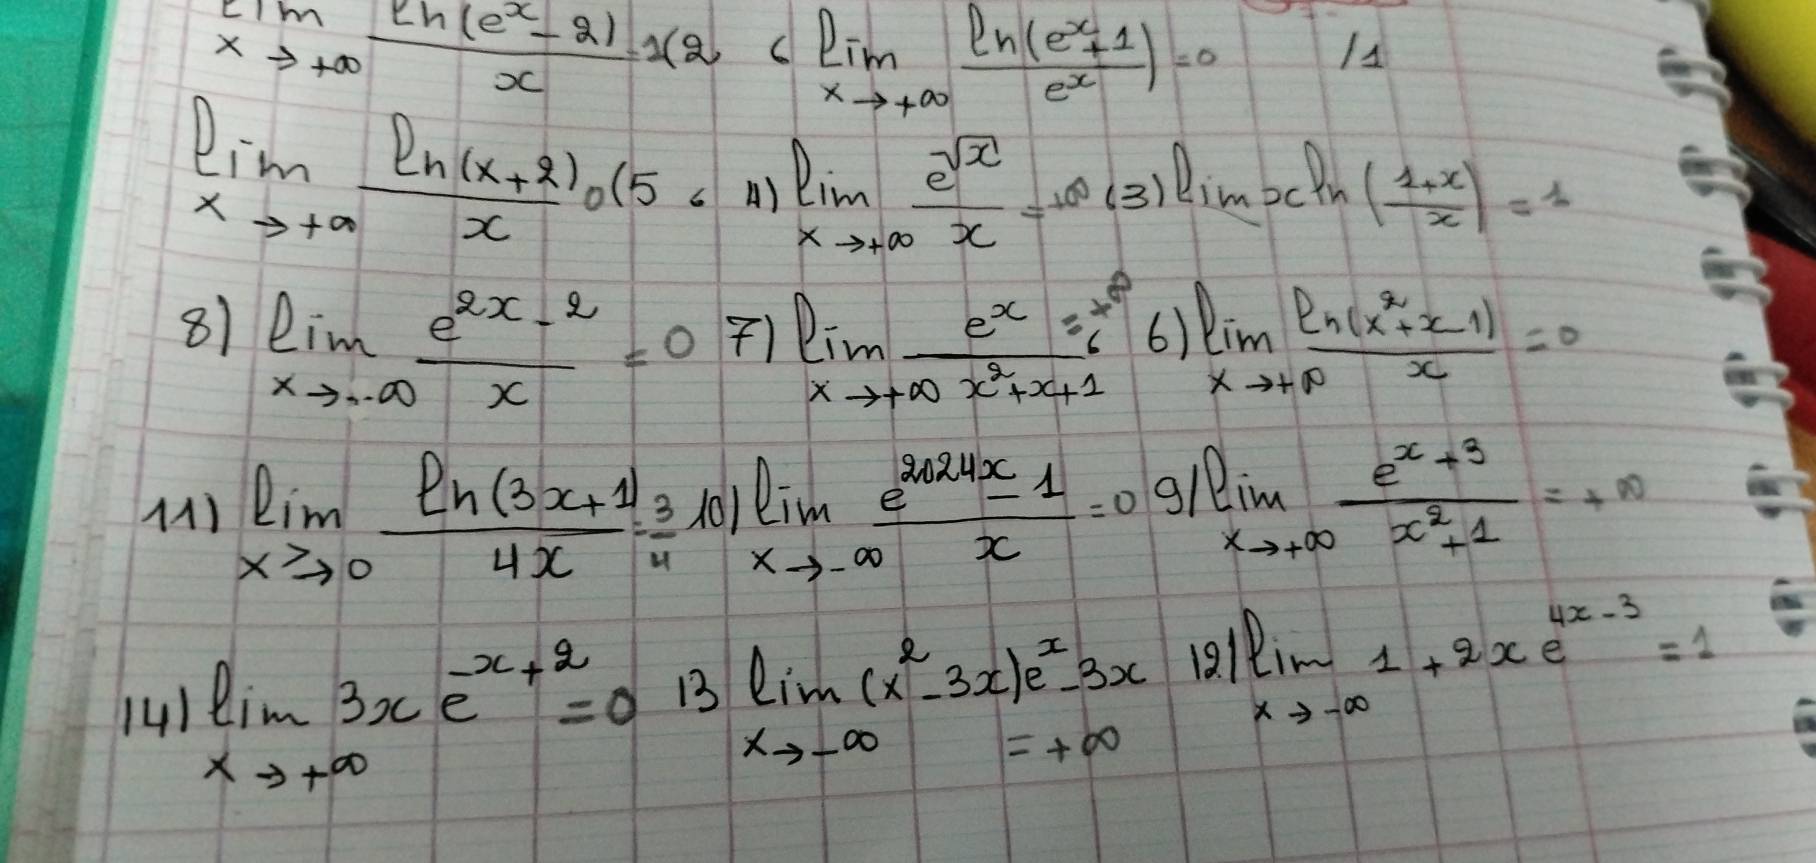 lim ln(e^x - 2) / x = 1 (2 ، lim ln(e^x + 1) / e^x ) = 0 /1
x → +∞ x → +∞
lim ln(x+2) / x = 0 (5 ، 4) lim e^√x / x = +∞ (3) lim x ln((1+x)/x) = 1
x → +∞ x → +∞
8) lim e^2x - 2 / x = 0 7) lim e^x / x²+x+1 = +∞ ، 6) lim ln(x²+x-1) / x = 0
x → -∞ x → +∞ x → +∞
11) lim ln(3x+1) / 4x = 3/4 10) lim e^2024x - 1 / x = 0 9/ lim e^x + 3 / x² + 1 = +∞
x >→ 0 x → -∞ x → +∞
14) lim 3x e^-x+2 = 0 13 lim (x² - 3x)e^x - 3x 12) lim 1 + 2x e^4x-3 = 1
x → +∞ x → -∞ = +∞ x → -∞